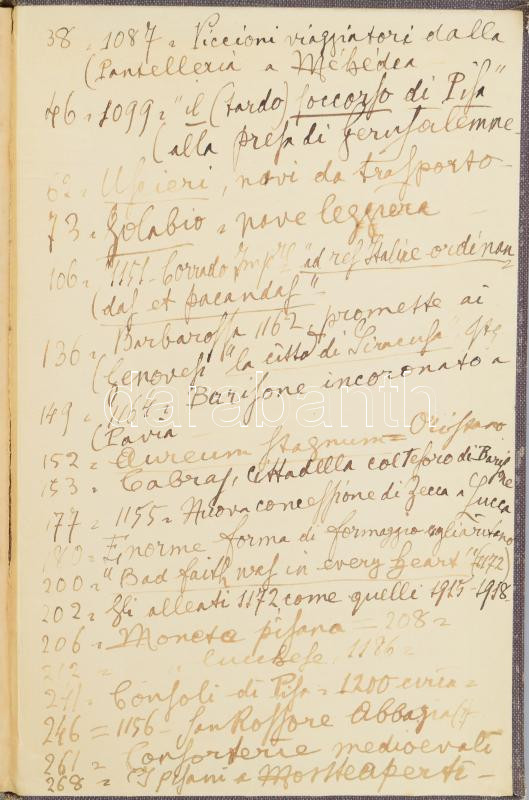 38 = 1087 = Piccioni viaggiatori dalla
(Pantelleria a Mehedea
46 = 1099 = "il (tardo) soccorso di Pisa"
(alla presa di Gerusalemme
62 = Uscieri, navi da trasporto
73 = Golabio = nave leggera
106 = "1151 - Corrado "ad res Italiae ordinan
(das et pacandas"
136 = Barbarossa 1162, promette ai
(Genovesi "la città di Siracusa"
149 = 1164 = Barisone incoronato a
(Pavia
152 = Aureum Stagnum = Oristano
153 = Cabras, cittadella col Tesoro di Barisone
177 = 1155 = Nuova concessione di Zecca a Lucca
180 = Enorme forma di formaggio
200 = "Bad faith was in every heart" (1172)
202 = Gli alleati 1172 come quelli 1915-1918
206 = Moneta pisana = 208 =
212 = " Lucchese, 1186 =
241 = Consoli di Pisa = 1200 circa =
246 = 1156 - San Rossore Abbazia
261 = Consorterie medioevali
268 = I pisani a Monteaperti -
darabanth